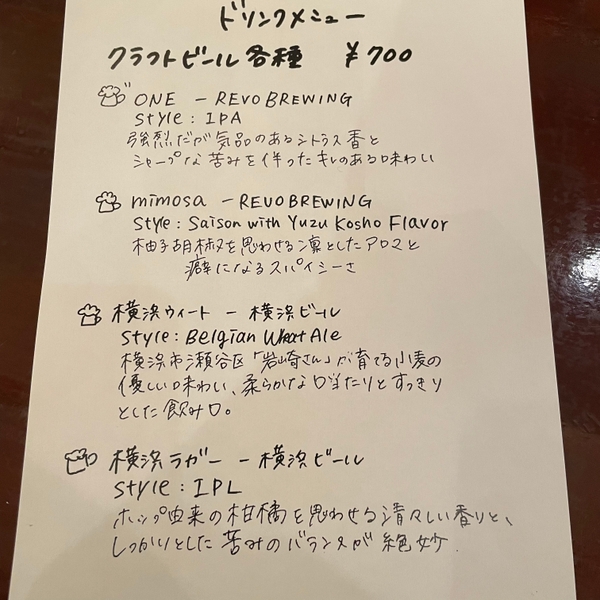 ドリンクメニュー
クラフトビール各種 ¥700
ONE - REVO BREWING
Style : IPA
強烈だが気品のあるシトラス香と
シャープな苦みを伴ったキレのある味わい
mimosa - REVO BREWING
Style : Saison with Yuzu Kosho Flavor
柚子胡椒を思わせる凛としたアロマと
癖になるスパイシーさ
横浜ウィート - 横浜ビール
Style : Belgian Wheat Ale
横浜市瀬谷区「岩崎さん」が育てる小麦の
優しい味わい、柔らかな口当たりとすっきり
とした飲み口。
横浜ラガー - 横浜ビール
Style : IPL
ホップ由来の柑橘を思わせる清々しい香りと、
しっかりとした苦みのバランスが絶妙.